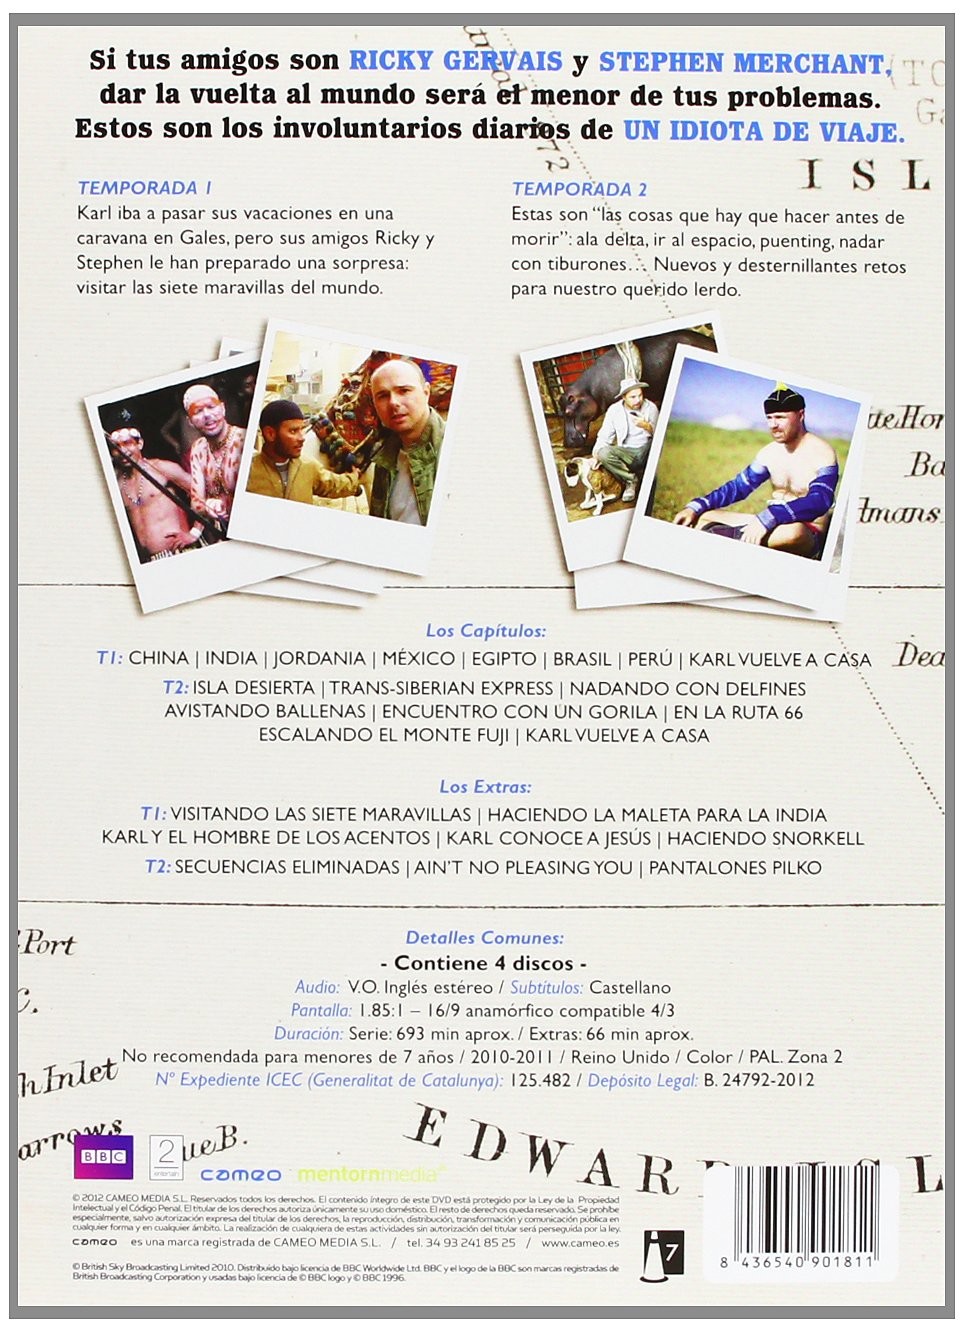 Si tus amigos son RICKY GERVAIS y STEPHEN MERCHANT,
dar la vuelta al mundo será el menor de tus problemas.
Estos son los involuntarios diarios de UN IDIOTA DE VIAJE.
ISL
TEMPORADA 1
Karl iba a pasar sus vacaciones en una
caravana en Gales, pero sus amigos Ricky y
Stephen le han preparado una sorpresa:
visitar las siete maravillas del mundo.
TEMPORADA 2
Estas son “las cosas que hay que hacer antes de
morir”: ala delta, ir al espacio, puenting, nadar
con tiburones... Nuevos y desternillantes retos
para nuestro querido lerdo.
Los Capítulos:
T1: CHINA | INDIA | JORDANIA | MÉXICO | EGIPTO | BRASIL | PERÚ | KARL VUELVE A CASA
T2: ISLA DESIERTA | TRANS-SIBERIAN EXPRESS | NADANDO CON DELFINES
AVISTANDO BALLENAS | ENCUENTRO CON UN GORILA | EN LA RUTA 66
ESCALANDO EL MONTE FUJI | KARL VUELVE A CASA
Los Extras:
T1: VISITANDO LAS SIETE MARAVILLAS | HACIENDO LA MALETA PARA LA INDIA
KARL Y EL HOMBRE DE LOS ACENTOS | KARL CONOCE A JESÚS | HACIENDO SNORKELL
T2: SECUENCIAS ELIMINADAS | AIN'T NO PLEASING YOU | PANTALONES PILKO
Port
Detalles Comunes:
- Contiene 4 discos -
Audio: V.O. Inglés estéreo / Subtítulos: Castellano
Pantalla: 1.85:1 – 16/9 anamórfico compatible 4/3
Duración: Serie: 693 min aprox. / Extras: 66 min aprox.
No recomendada para menores de 7 años / 2010-2011 / Reino Unido / Color / PAL. Zona 2
Nº Expediente ICEC (Generalitat de Catalunya): 125.482 / Depósito Legal: B. 24792-2012
hInlet
arrows
ueB.
EDWAR
BBC
2 entertain
cameo
mentornmedia
© 2012 CAMEO MEDIA S.L. Reservados todos los derechos. El contenido íntegro de este DVD está protegido por la Ley de la Propiedad
Intelectual y el Código Penal. El titular de los derechos autoriza únicamente su uso doméstico. El resto de derechos queda reservado. Se prohíbe
especialmente, salvo autorización expresa del titular de los derechos, la reproducción, distribución, transformación y comunicación pública en
cualquier forma y en cualquier ámbito. La realización de cualquiera de estas actividades sin autorización del titular será perseguida por la ley.
cameo es una marca registrada de CAMEO MEDIA S.L. / tel. 34 93 241 85 25 / www.cameo.es
© British Sky Broadcasting Limited 2010. Distribuido bajo licencia de BBC Worldwide Ltd. BBC y el logo de la BBC son marcas registradas de
British Broadcasting Corporation y usadas bajo licencia de © BBC logo y © BBC 1996.
7
8 436540 901811